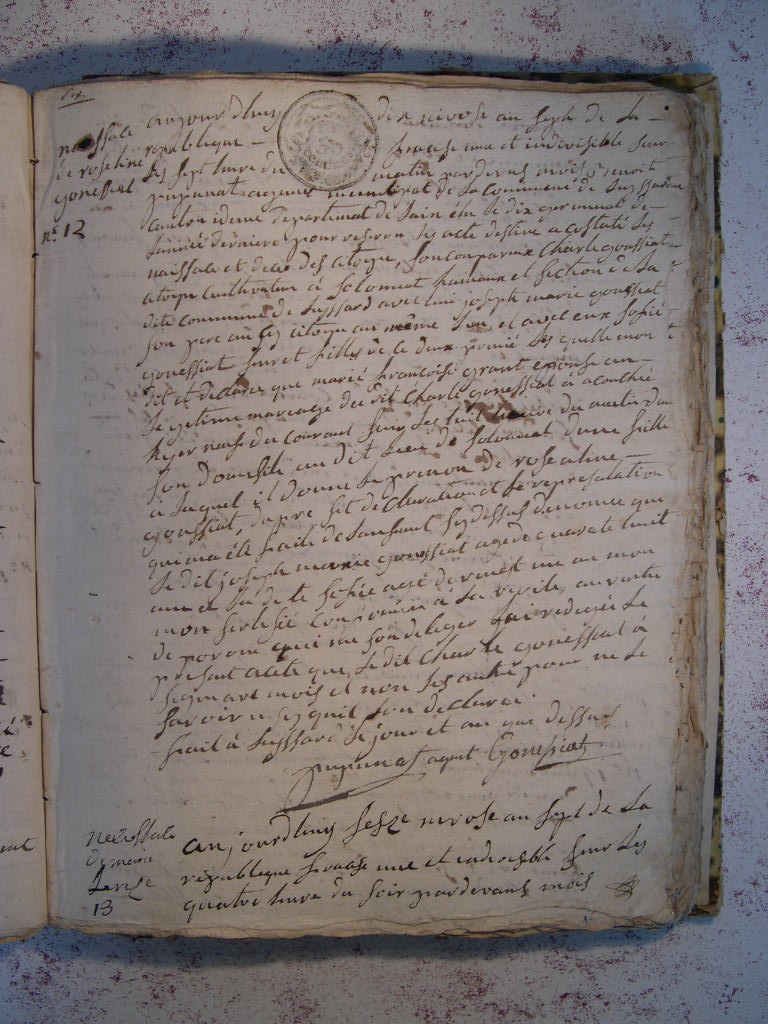 six
naissale
de roseline
gonessiat
n.º 12
aujourdhuy dix nivose au sept de la
republique francse une et indivisible sur
les sept heure du matin pardevant mois benoit
pupunat agent municipal de la commune de
canton idem departemat de lain élu le dix germinal de
lannée derniere pour les acte destiné a costaté les
naissale et decé des citoye, son comparux Charle gonessiat
citoye cultivateur à solomiat hameaux et section de la
dite commune de avec lui joseph marie gonessiat
son pere aussy citoye au même lieu, et avec eux sofie
gonessiat seur et fille de ce deux premié les quelle mon
dit et declare que marié françoise grant epouse en
legetime mariaige du dit Charle gonessiat à acouchée
hyer neuf du courant sur les huit heure du matin du
son domisile au dit lieu de solomiat dune fille
à laquel il donne le prenon de roseline
gonessiat, dapre set declaration et le represalation
qui ma été faite de lanfant sy dessus denomee que
le dit joseph marie gonessiat agé de quarate huit
ans et la de te sofie agé de vingt un an mon
mon sertifié conforme à la verite, au vertu
de pouvoir qui me son deleger jai redigée le
presant acte que le dit Charle gonessiat à
signart mois et non les autre pour ne le
savoir n sy quil son declaree.
fait à le jour et an que dessus
pupunat agent Gonessiat
neissale
de marie
13
aujourdhuy sesze nivose au sept de la
republique francse une et indivisible sur les
quatre heure du soir pardevant mois